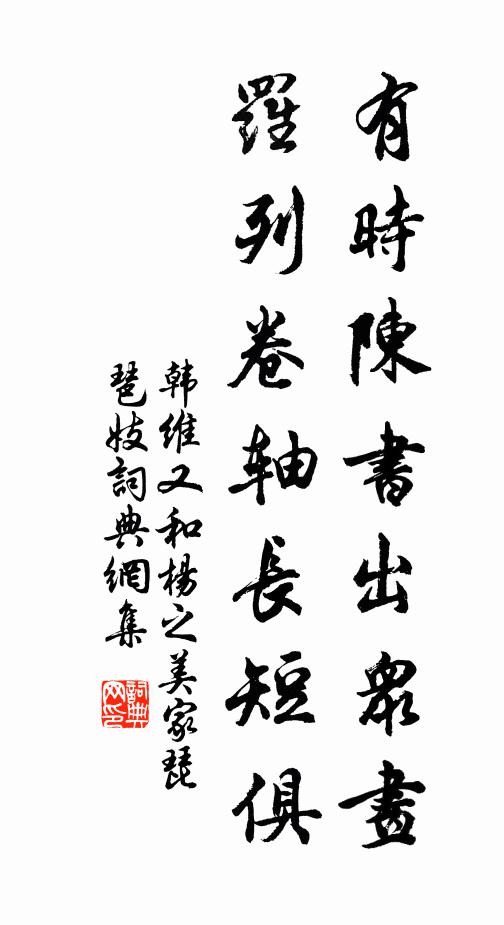 有時陳書出衆畫
羅列卷轴長短俱
韩维又和楊之美家琵
琶妓詞典網集
詞典网印